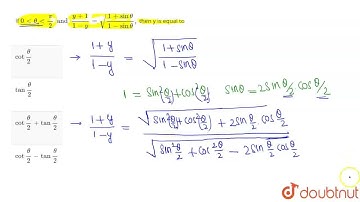 If 0 < θ < π/2 and (y+1)/(1−y) = √((1+sinθ)/(1−sinθ)), then y is equal to
cot θ/2
tan θ/2
cot θ/2 + tan θ/2
cot θ/2 − tan θ/2
→ (1+y)/(1−y) = √((1+sinθ)/(1−sinθ))
1 = sin²(θ/2)+cos²(θ/2) sinθ=2sin θ/2 cos θ/2
→ (1+y)/(1−y) = √(sin²(θ/2)+cos²(θ/2) + 2sin θ/2 cos θ/2) / √(sin²θ/2 + cos²θ/2 − 2sin θ/2 cos θ/2)
doubtnut